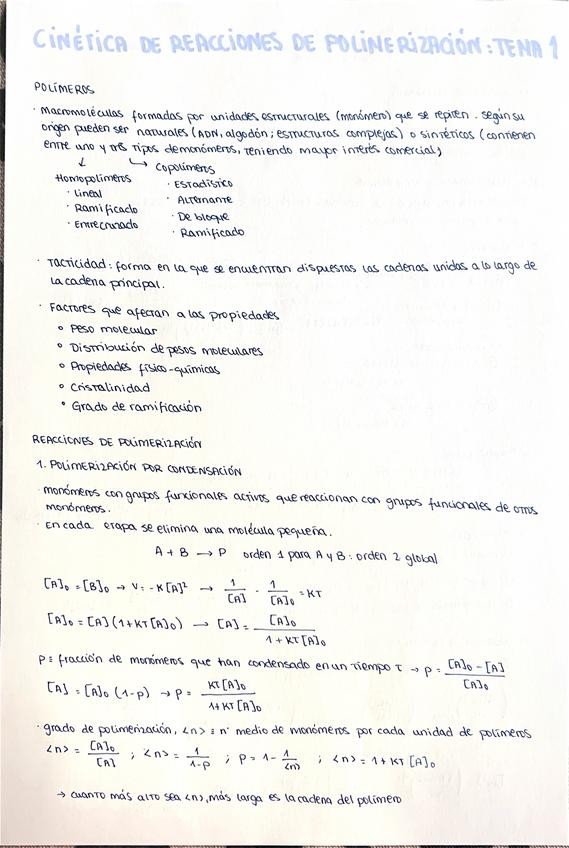 CINÉTICA DE REACCIONES DE POLIMERIZACIÓN: TEMA 1
POLÍMEROS
· Macromoléculas formadas por unidades estructurales (monómero) que se repiten. Según su
origen pueden ser naturales (ADN, algodón; estructuras complejas) o sintéticos (contienen
entre uno y tres tipos de monómeros, teniendo mayor interés comercial)
↓ ↳ Copolímeros
Homopolímeros
· Estadístico
· Lineal
· Alternante
· Ramificado
· De bloque
· Entrecruzado
· Ramificado
· Tacticidad: forma en la que se encuentran dispuestas las cadenas unidas a lo largo de
la cadena principal.
· Factores que afectan a las propiedades
° Peso molecular
° Distribución de pesos moleculares
° Propiedades físico-químicas
° Cristalinidad
° Grado de ramificación
REACCIONES DE POLIMERIZACIÓN
1. POLIMERIZACIÓN POR CONDENSACIÓN
· monómeros con grupos funcionales activos que reaccionan con grupos funcionales de otros
monómeros.
· En cada etapa se elimina una molécula pequeña.
A + B → P orden 1 para A y B: orden 2 global
[A]₀ = [B]₀ → v = -k[A]² → 1/[A] - 1/[A]₀ = kt
[A]₀ = [A](1+kt[A]₀) → [A] = [A]₀/(1+kt[A]₀)
p = fracción de monómeros que han condensado en un tiempo t → p = ([A]₀ - [A])/[A]₀
[A] = [A]₀ (1-p) → p = kt[A]₀/(1+kt[A]₀)
· grado de polimerización, <n> = nº medio de monómeros por cada unidad de polímeros
<n> = [A]₀/[A] ; <n> = 1/(1-p) ; p = 1 - 1/<n> ; <n> = 1 + kt [A]₀
→ cuanto más alto sea <n>, más larga es la cadena del polímero